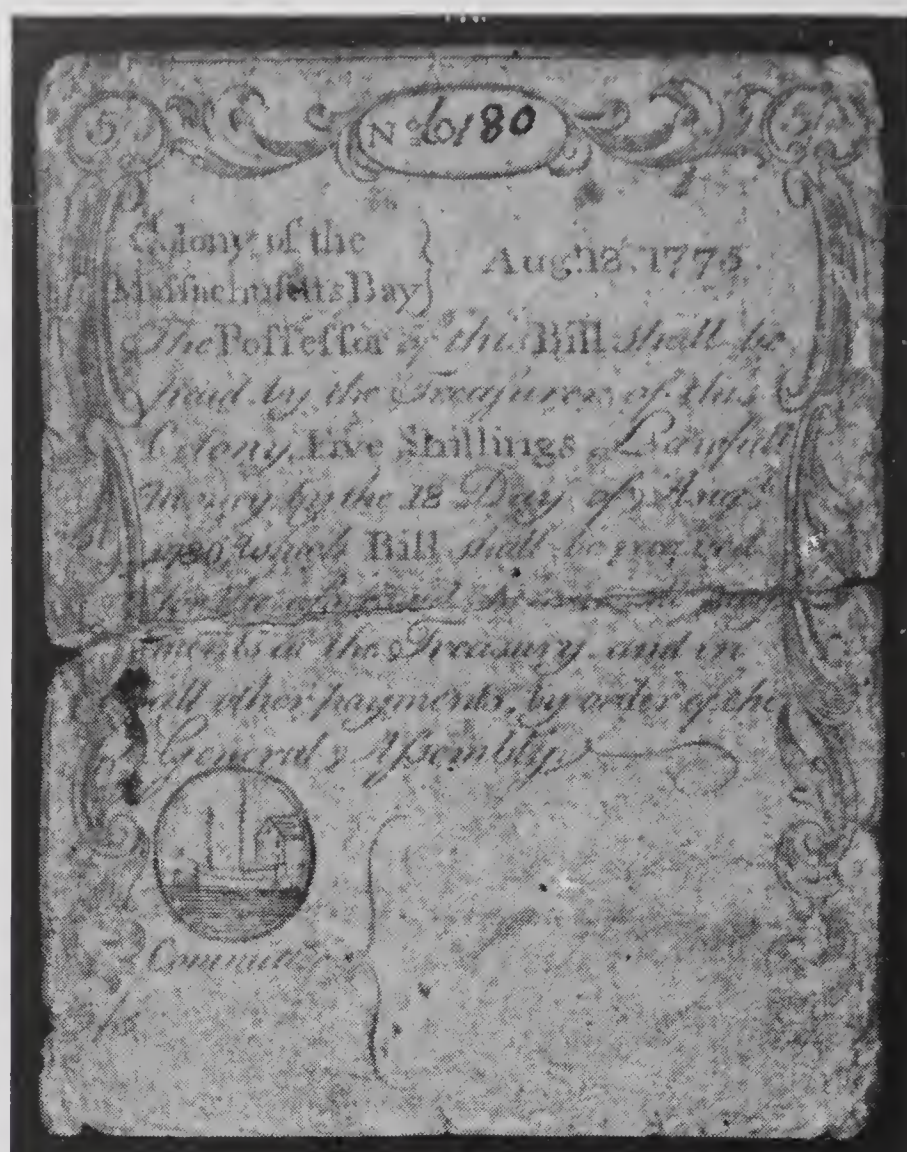 5/ No 6180 5/
Colony of the
Massachusetts Bay } Augt. 18, 1775.
The Possessor of this Bill shall be
paid by the Treasurer of this
Colony, Five Shillings Lawfull
money by the 18 Day of Augt.
1780 which Bill shall be received
for the aforesaid
ments at the Treasury and in
all other payments, by order of the
General Assembly.
Committee